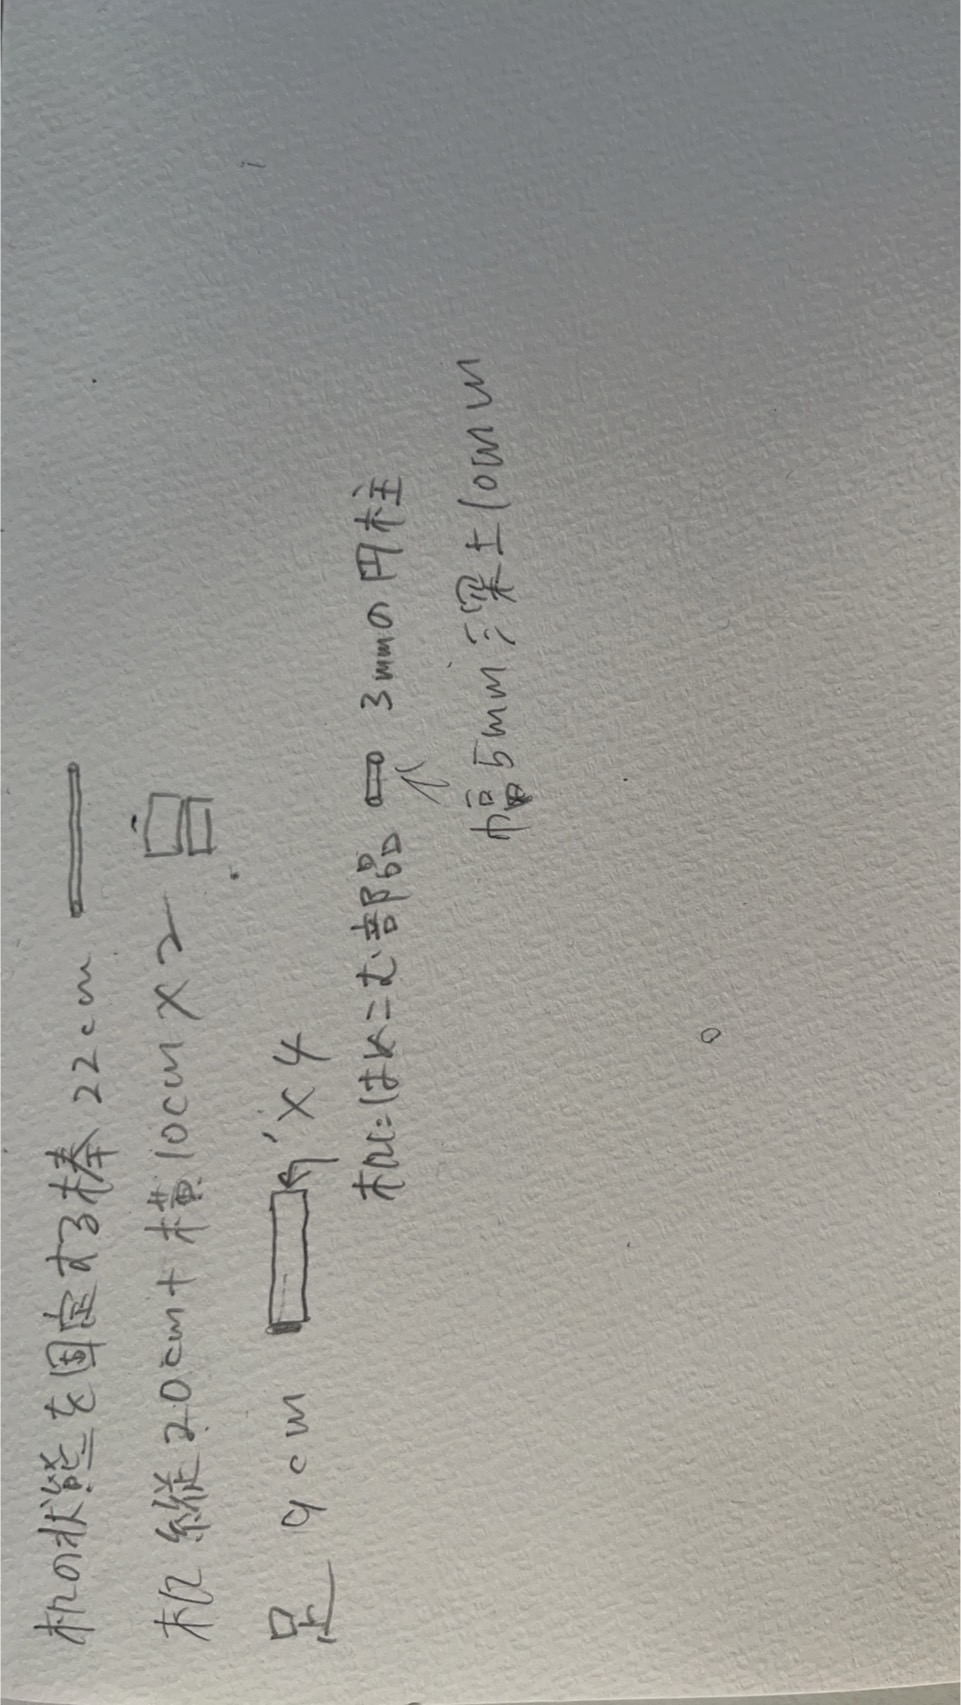 机の状態を固定する棒 22cm
机 縦20cm+横10cm×2
足 9cm ×4
机にはめこむ部品 3mmの円柱
幅5mm 深さ10mm